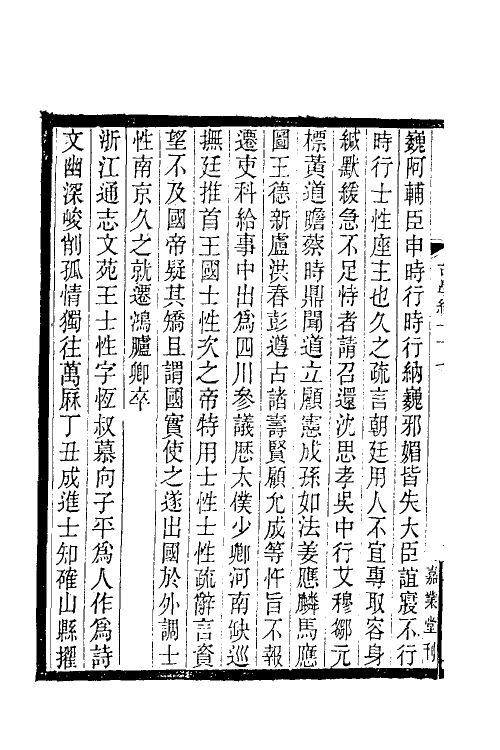 巍阿輔臣申時行時行納巍邪媚皆失大臣誼寢不行
時行士性座主也久之疏言朝廷用人不宜專取容身
緘默緩急不足恃者請召還沈思孝吳中行艾穆鄒元
標黃道瞻蔡時鼎聞道立顧憲成孫如法姜應麟馬應
圖王德新盧洪春彭遵古諸壽賢顧允成等忤旨不報
遷吏科給事中出爲四川參議歷太僕少卿河南缺巡
撫廷推首王國士性次之帝特用士性士性疏辭言資
望不及國帝疑其矯且謂國實使之遂出國於外調士
性南京久之就遷鴻臚卿卒
浙江通志文苑王士性字恆叔慕向子平爲人作爲詩
文幽深峻削孤情獨往萬厤丁丑成進士知確山縣擢
嘉業堂刊